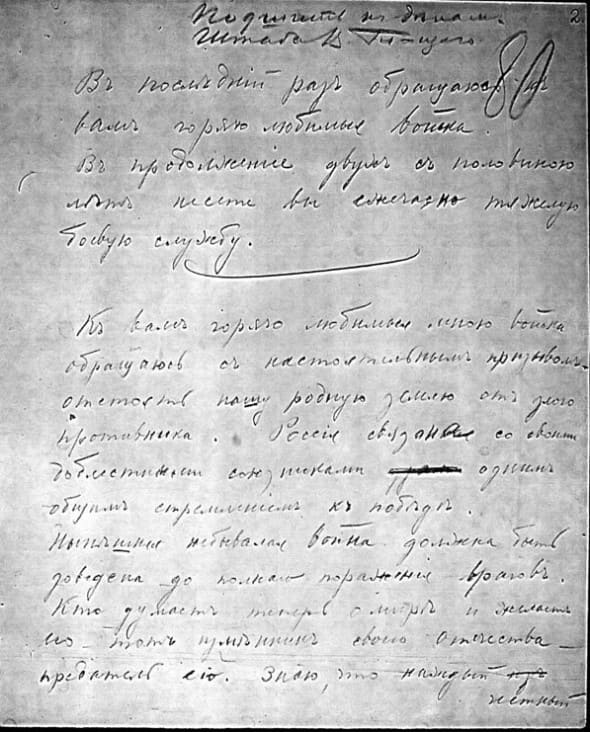 Подшить къ дѣламъ
Штаба В
2.
80
Въ послѣдній разъ обращаюсь къ
вамъ горячо любимыя войска.
Въ продолженіе двухъ съ половиною
лѣтъ несете вы ежечасно тяжелую
боевую службу.
Къ вамъ горячо любимыя мною войска
обращаюсь съ настоятельнымъ призывомъ
отстоять нашу родную землю отъ злого
противника. Россія связана со своими
доблестными союзниками однимъ
общимъ стремленіемъ къ побѣдѣ.
Нынѣшняя небывалая война должна быть
доведена до полнаго пораженія враговъ.
Кто думаетъ теперь о мирѣ и желаетъ
его – тотъ измѣнникъ своего отечества –
предатель его. Знаю, что каждый изъ
честный